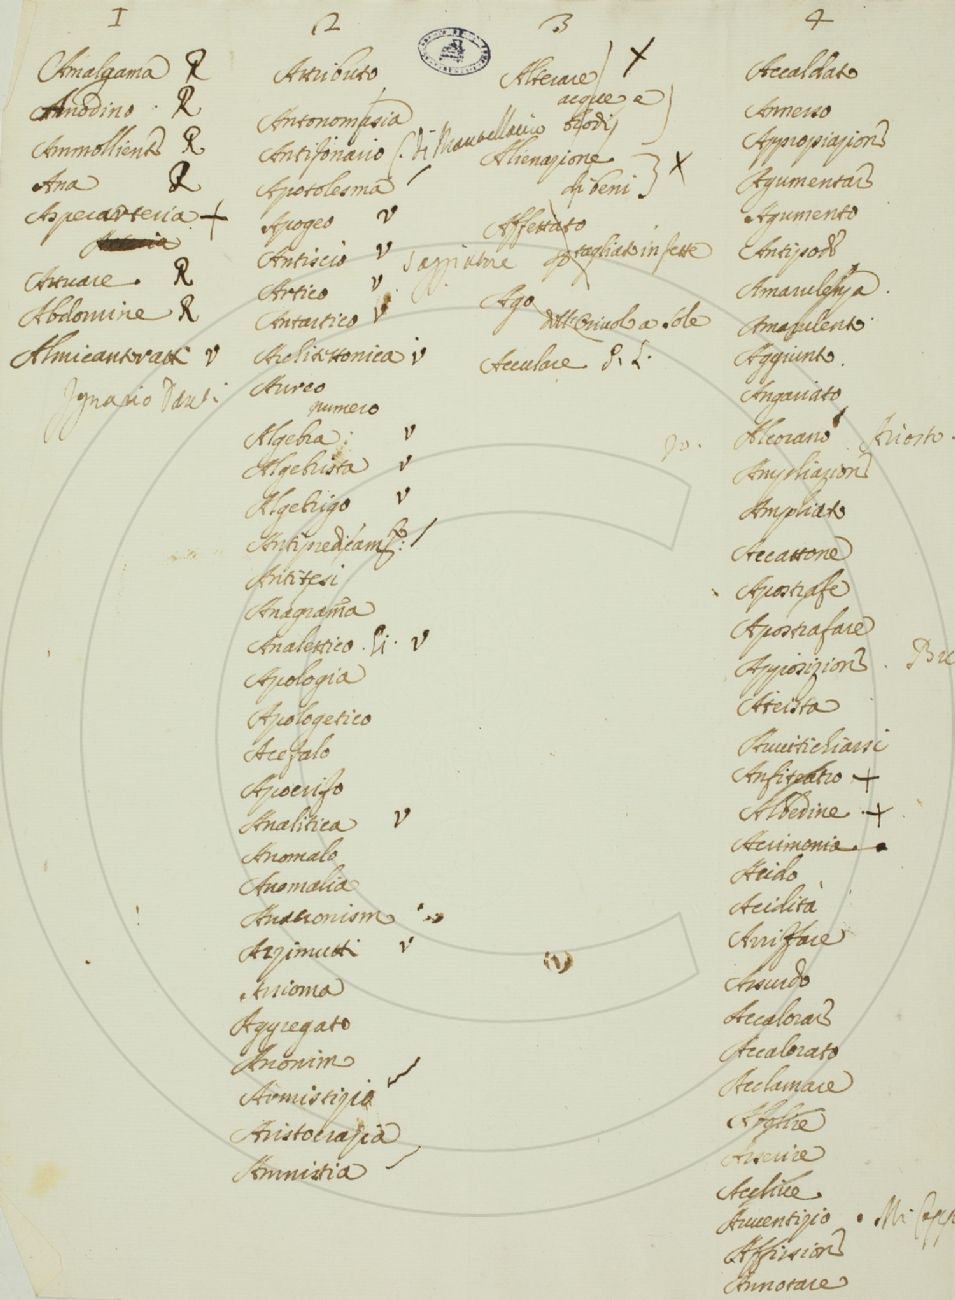 1
Amalgama R
Anodino R
Ammollient R
Ana R
Asperarteria +
Attuare R
Abdomine R
Almicantvratti v
Ignazio Danti
2
Attributo
Antonomasia
Antifonario
Apotolesma
Apogeo v
Antiscio v
Artico v
Antartico v
v
Aureo
numero
Algebra v
Algebrista v
Algebrigo v
Antitesi
Anagramma
Analettico v
Apologia
Apologetico
Acefalo
Apocrifo
Analitica v
Anomalo
Anomalia
Anacronism
Azzimutti v
Assioma
Aggregato
Anonim
Armistizio
Aristocrazia
Amnistia
3
Alterare X
acque e
Alienazione X
di beni
Affettato
tagliato in fette
Ago
dell'Oriuolo a Sole
Acculare P. L.
4
Accaldato
Annesso
Appropriazion
Argumento
Antipod
Amarulenza
Amarulent
Aggiunto
Angariato
Alcorano Ariosto
Ampliazion
Ampliato
Accattone
Apostrafe
Apostrafare
Apposizion
Ateista
Anfiteatro +
Albedine +
Acrimonia
Acido
Acidità
Arriffare
Assurdo
Accalorar
Accalorato
Acclamare
Asserire
Avventizio
Affission
Annotare